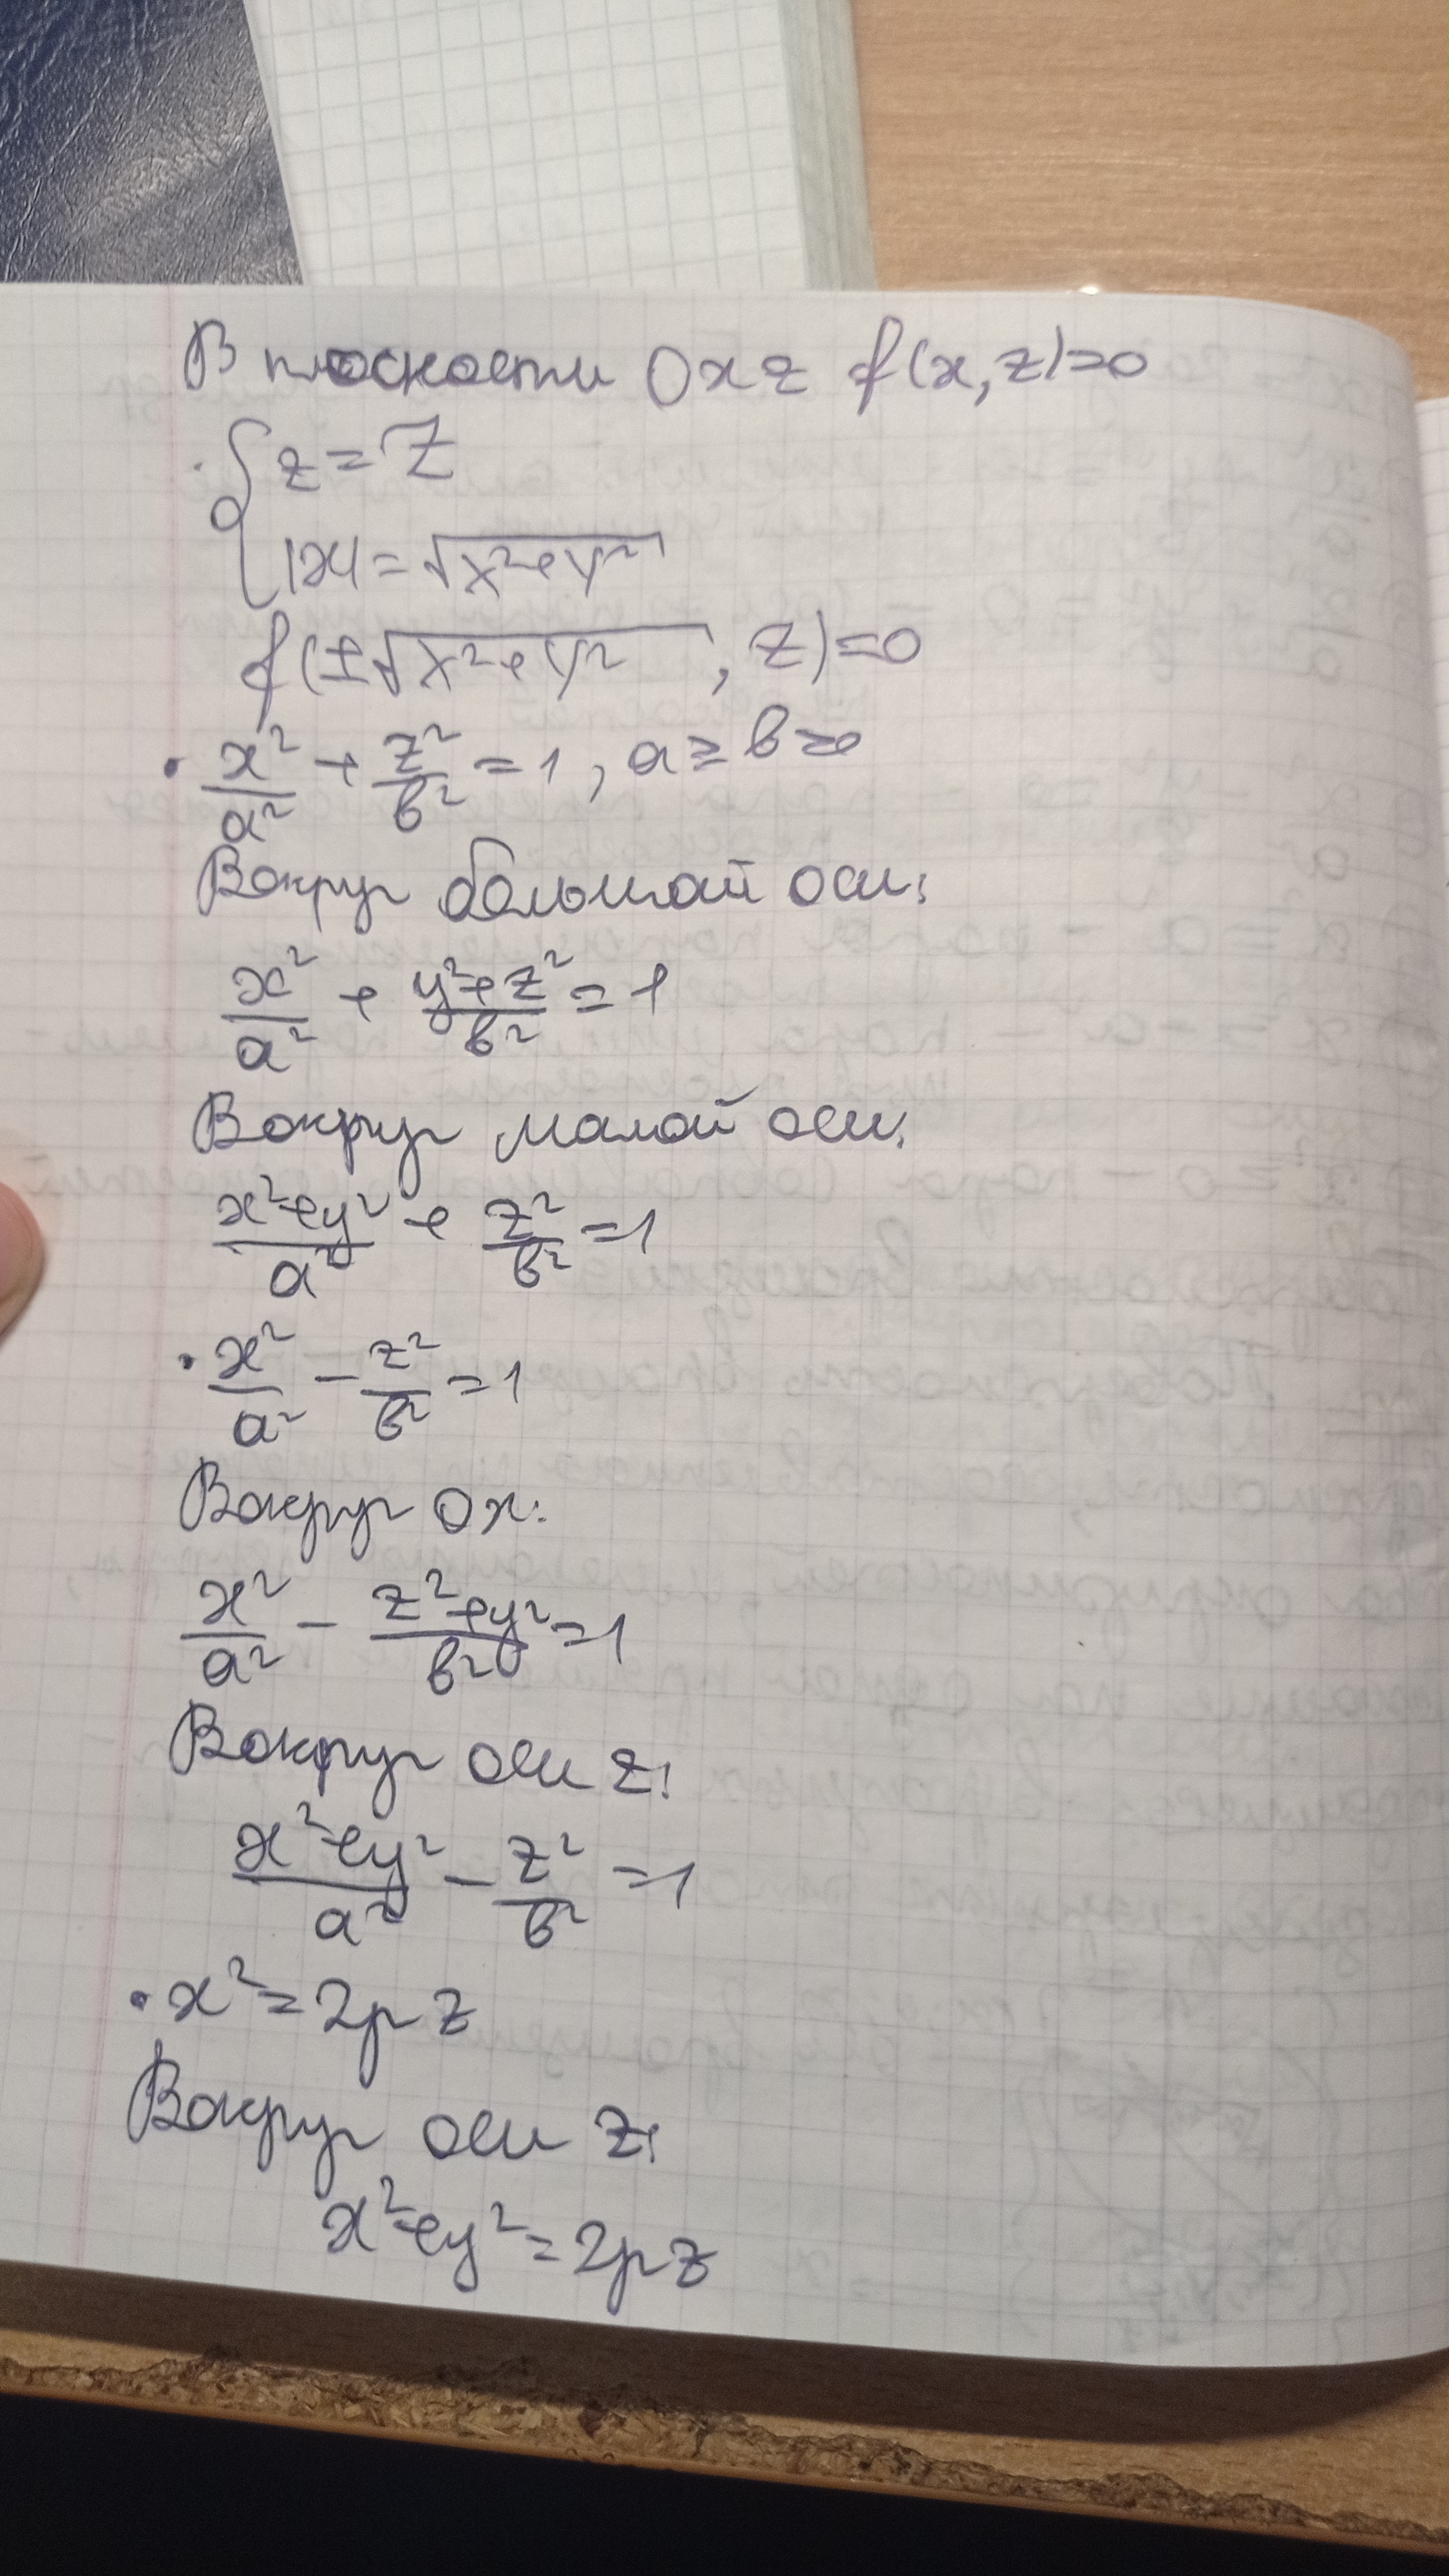 В плоскости Oxz f(x,z)=0
{ z = Z
|x| = √(X²+Y²)
f(±√(X²+Y²), Z)=0
• x²/a² + z²/b² = 1, a ≥ b ≥ 0
Вокруг большой оси:
x²/a² + (y²+z²)/b² = 1
Вокруг малой оси:
(x²+y²)/a² + z²/b² = 1
• x²/a² - z²/b² = 1
Вокруг Ox:
x²/a² - (z²+y²)/b² = 1
Вокруг оси z:
(x²+y²)/a² - z²/b² = 1
• x² = 2pz
Вокруг оси z:
x²+y² = 2pz